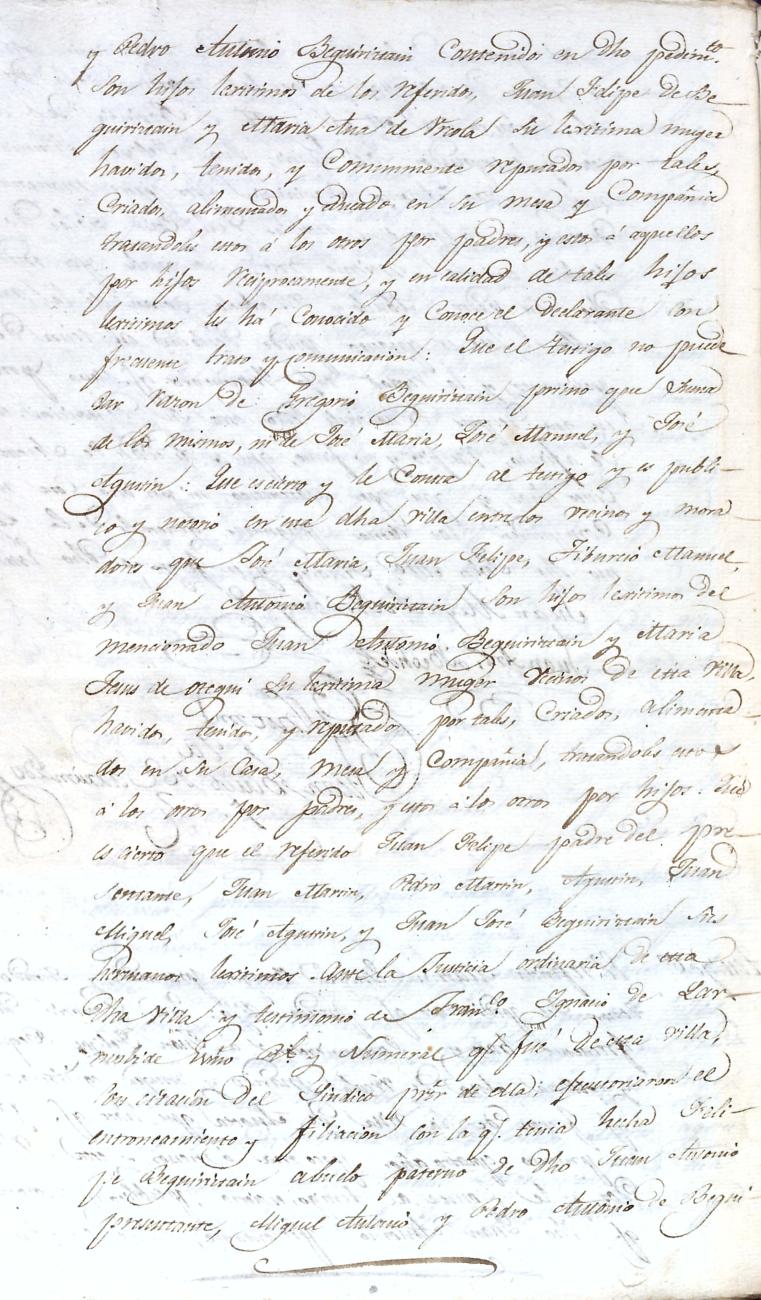 y Pedro Antonio Beguiriztain Contenidos en dho pedimto.
Son hijos lexitimos de los referidos, Juan Felipe de Be-
guiriztain y Maria Ana de Urcola su lexitima muger
havidos, tenidos, y Comunmente reputados por tales,
Criados, alimentados y educados en su mesa y Compañia
tratandolos estos á los otros por padres, y estos á aquellos
por hijos reciprocamente, y en calidad de tales hijos
lexitimos les há Conocido y Conoce el Declarante con
frecuente trato y comunicacion: Que el testigo no puede
dar razon de Gregorio Beguiriztain primo que
de los mismos, ni de José Maria, José Manuel, y José
Agustin: Que es cierto y le Consta al testigo y es publi-
co y notorio en esta dha villa entre los vecinos y mora-
dores que José Maria, Juan Felipe, Tiburcio Manuel,
y Juan Antonio Beguiriztain son hijos lexitimos del
mencionado Juan Antonio Beguiriztain y Maria
Jesus de oregui su lexitima muger vecinos de esta villa,
havidos, tenidos, y reputados por tales, Criados, alimenta-
dos en su Casa, mesa y Compañia, tratandolos estos
á los otros por padres, y estos á los otros por hijos. Que
es cierto que el referido Juan Felipe padre del pre-
sentante, Juan Martin, Pedro Martin, Agustin, Juan
Miguel, José Agustin, y Juan José Beguiriztain sus
hermanos lexitimos Ante la Justicia ordinaria de esta
dha villa y testimonio de Franco. Ignacio de Lar-
Esno Rl. y Numeral q. fué de esta villa,
con citacion del Sindico pror de ella; executoriaron el
entroncamiento y filiacion con la q. tenia hecha Feli-
pe Beguiriztain abuelo paterno de dho Juan Antonio
presentante, Miguel Antonio y Pedro Antonio de Begui-